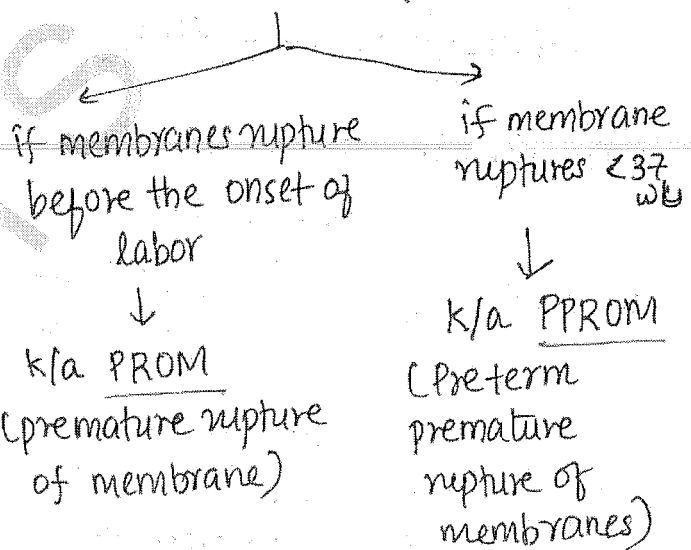 if membranes rupture
before the onset of
labor
k/a PROM
(premature rupture
of membrane)
if membrane
ruptures <37
wk
k/a PPROM
(Preterm
premature
rupture of
membranes)